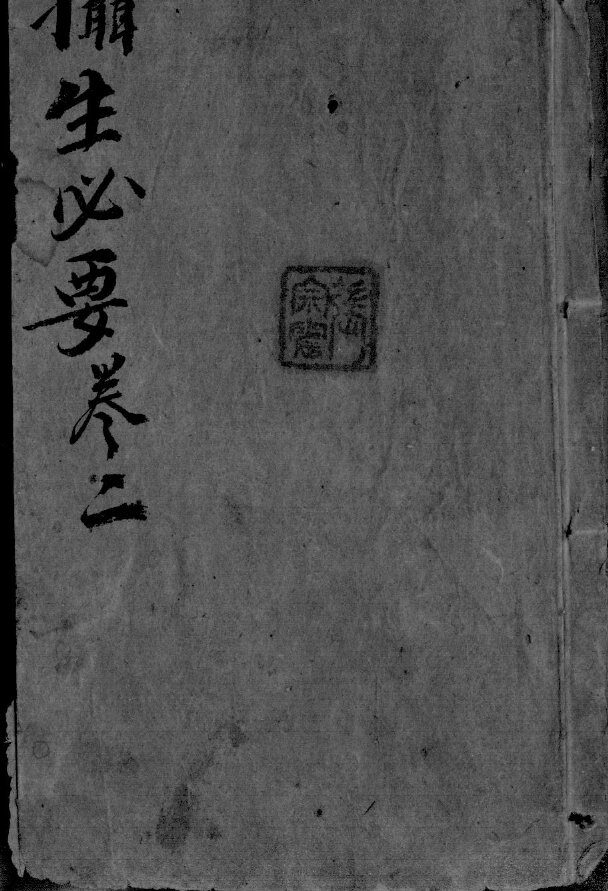 攝生必要卷二